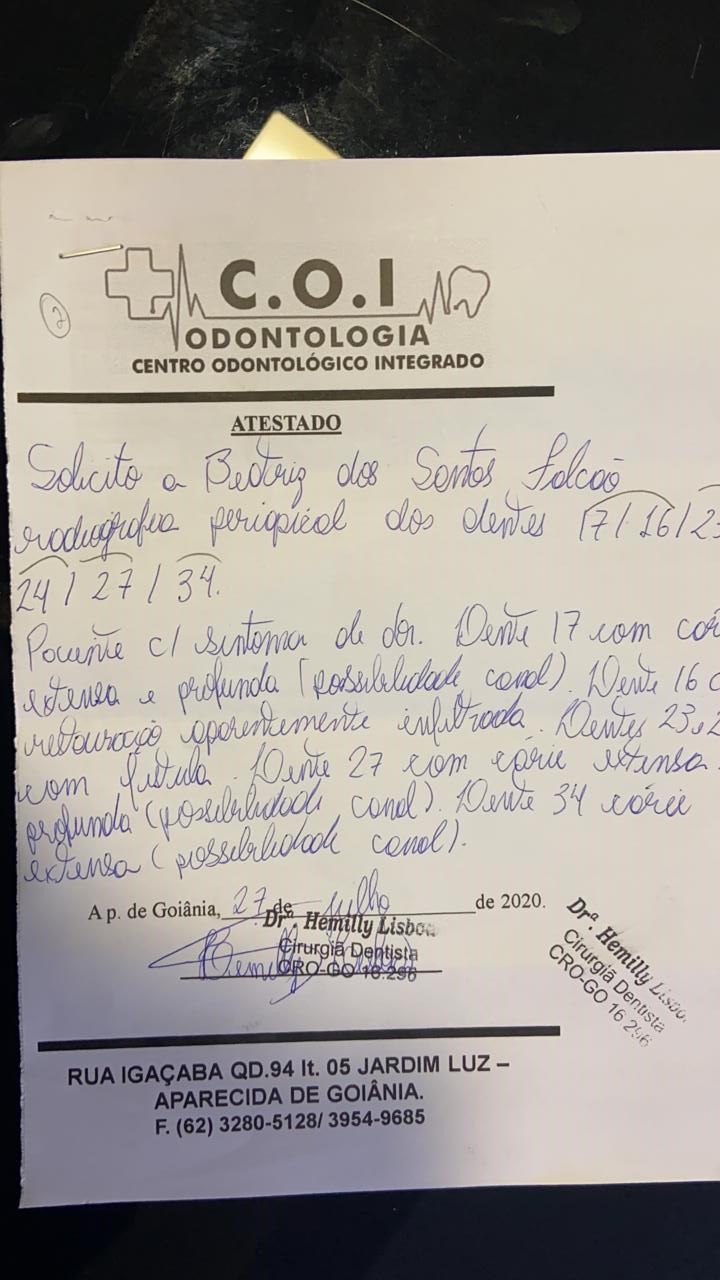 2
C.O.I
ODONTOLOGIA
CENTRO ODONTOLÓGICO INTEGRADO
ATESTADO
Solicito a Beatriz dos Santos Falcão
radiografia periapical dos dentes 17/16/23
24/27/34.
Paciente c/ sintoma de dor. Dente 17 com cár
extensa e profunda (possibilidade canal). Dente 16 c
restauração aparentemente infiltrada. Dentes 23 e 2
com fístula. Dente 27 com cárie extensa
profunda (possibilidade canal). Dente 34 cárie
extensa (possibilidade canal).
A p. de Goiânia, 27 de julho de 2020.
Drª. Hemilly Lisboa
Cirurgiã Dentista
CRO-GO 16.296
Drª. Hemilly Lisboa
Cirurgiã Dentista
CRO-GO 16 296
RUA IGAÇABA QD.94 lt. 05 JARDIM LUZ –
APARECIDA DE GOIÂNIA.
F. (62) 3280-5128/ 3954-9685